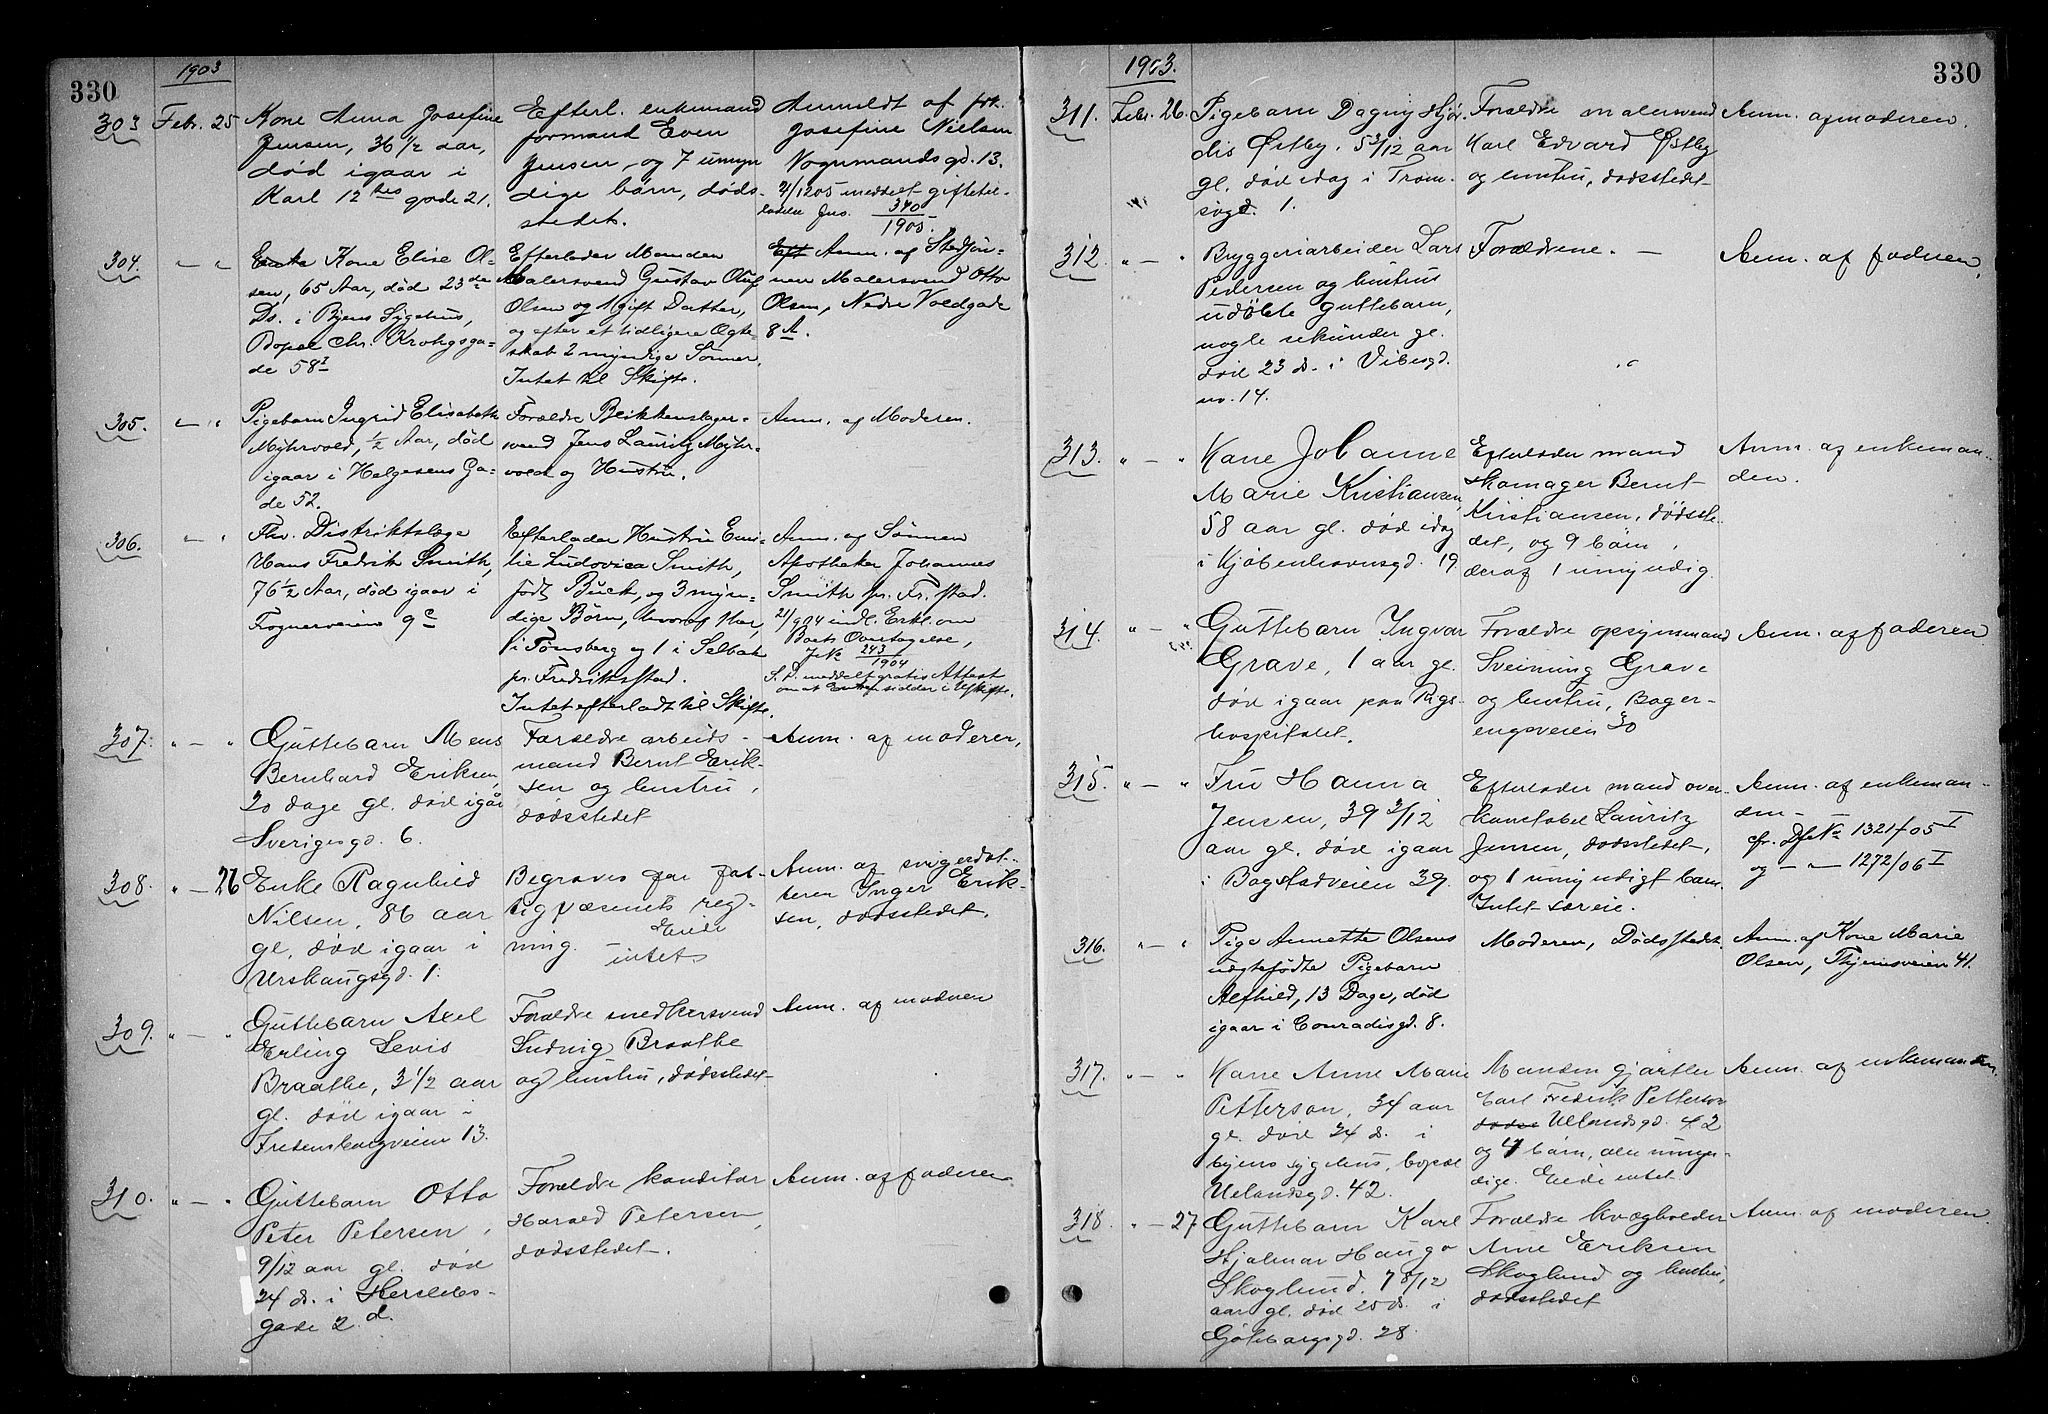 330
1903
303 Febr. 25 Kone Anna Josefine
Jensen, 36 1/2 aar,
død igaar i
Karl 12tes gade 21.
Efterl. enkemand
formand Even
Jensen, og 7 umyn
dige børn, døds-
stedet.
Anmeldt af frk.
Josefine Nielsen
Vognmandsgd. 13.
meddelt giftetil-
ladelse Jns. 340
1905.
304. " — " Enke Kone Elise Ol-
sen, 65 Aar, død 23de
Ds. i Byens Sygehus,
Bopæl Chr. Krohgsga-
de 58 I
Efterlader Manden
Malersvend Gustav Oluf
Olsen og 1 gift Datter,
og efter et tidligere Ægte-
skab 2 myndige Sønner.
Intet til Skifte.
Eft Anm. af Stedsøn-
nen Malersvend Otto
Olsen, Nedre Voldgade
8 A.
305. " — " Pigebarn Ingrid Elisabeth
Myhrvold, 1/2 Aar, død
igaar i Helgesens Ga-
de 52.
Forældre Blikkenslager-
svend Jens Lauritz Myhr-
vold og Hustru.
Anm. af Moderen.
306. " — " Fhv. Distriktslæge
Hans Fredrik Smith,
76 1/2 Aar, død igaar i
Frognerveien 9 c
Efterlader Hustru Emi-
lie Ludovica Smith,
født Buck, og 3 myn-
dige Børn, hvoraf 1 her,
1 i Tønsberg og 1 i Selbak
pr. Fredriksstad.
Intet efterladt til Skifte.
Anm. af Sønnen
Apotheker Johannes
Smith pr. Fr.stad.
21/9 04 indl. Erkl. om
Boets Overtagelse,
J.No 243
1904
S. D. meddelt gratis Attest
om at Enken sidder i Uskifte.
307. " — " Guttebarn Mons
Bernhard Eriksen,
20 dage gl. død igår
Sverigesgd. 6.
Forældre arbeids-
mand Bernt Erik-
sen og hustru,
dødsstedet
Anm. af moderen,
308. " — 26 Enke Ragnhild
Nilsen, 86 aar
gl. død igaar i
Urskaugsgd. 1.
Begraves for fat-
tigvæsenets reg-
ning. Eiede
intet
Anm. af svigerdat-
teren Inger Erik-
sen, dødsstedet.
309. " — " Guttebarn Axel
Erling Levis
Braathe, 3 1/2 aar
gl. død igaar i
Fredensborgveien 13.
Forældre snedkersvend
Ludvig Braathe
og hustru, dødsstedet
Anm. af moderen
310. " — " Guttebarn Otto
Peter Petersen,
9/12 aar gl. død
24 ds. i Herslebs-
gade 2 d.
Forældre konditor
Harald Petersen,
dødsstedet.
Anm. af faderen
1903.
330
311. Febr. 26. Pigebarn Dagny Hjør-
dis Østby. 5 3/12 aar
gl. død idag i Trom-
søgd. 1.
Forældre malersvend
Karl Edvard Østby
og hustru, dødsstedet
Anm. af moderen.
312. " — " Bryggeriarbeider Lars
Pedersen og hustrus
udøbte guttebarn,
nogle sekunder gl.
død 23 ds. i Vibesgd.
no. 14.
Forældrene. —
Anm. af faderen.
313. " — " Kone Johanne
Marie Kristiansen,
58 aar gl. død idag
i Kjøbenhavnsgd. 19
Efterlader mand
skomager Bernt
Kristiansen, dødsste-
det, og 9 børn,
deraf 1 umyndig.
Anm. af enkeman-
den.
314. " — " Guttebarn Yngvar
Grave, 1 aar gl.
død igaar paa Rigs-
hospitalet.
Forældre opsynsmand
Sveinung Grave
og hustru, Bøger-
engsveien 30
Anm. af faderen
315. " — " Fru Hanna
Jensen, 39 3/12
aar gl. død igaar
i Bogstadveien 39.
Efterlader mand over-
konstabel Lauritz
Jensen, dødsstedet,
og 1 umyndigt barn.
Intet særeie.
Anm. af enkeman-
den —
cfr. Df No 1321/05 I
og — " — 1272/06 I
316. " — " Pige Annette Olsens
uægtefødte Pigebarn
Alfhild, 13 Dage, død
igaar i Conradisgd. 8.
Moderen, Dødsstedet
Anm. af Kone Marie
Olsen, Thjemsveien 41.
317. " — " Kone Anne Marie
Petterson, 34 aar
gl. død 24 ds. i
byens sygehus, bopæl
Uelandsgd. 42.
Manden gjørtler
Carl Fredrik Petterson
Uelandsgd. 42
og 4 børn, alle umyn-
dige. Eiede intet
Anm. af enkemanden.
318. " — 27 Guttebarn Karl
Hjalmar Haugo
Skoglund. 7 8/12
aar gl. død 25 ds. i
Gøteborgsgd. 28.
Forældre kvægholder
Arne Eriksen
Skoglund og hustru,
dødsstedet
Anm. af moderen.